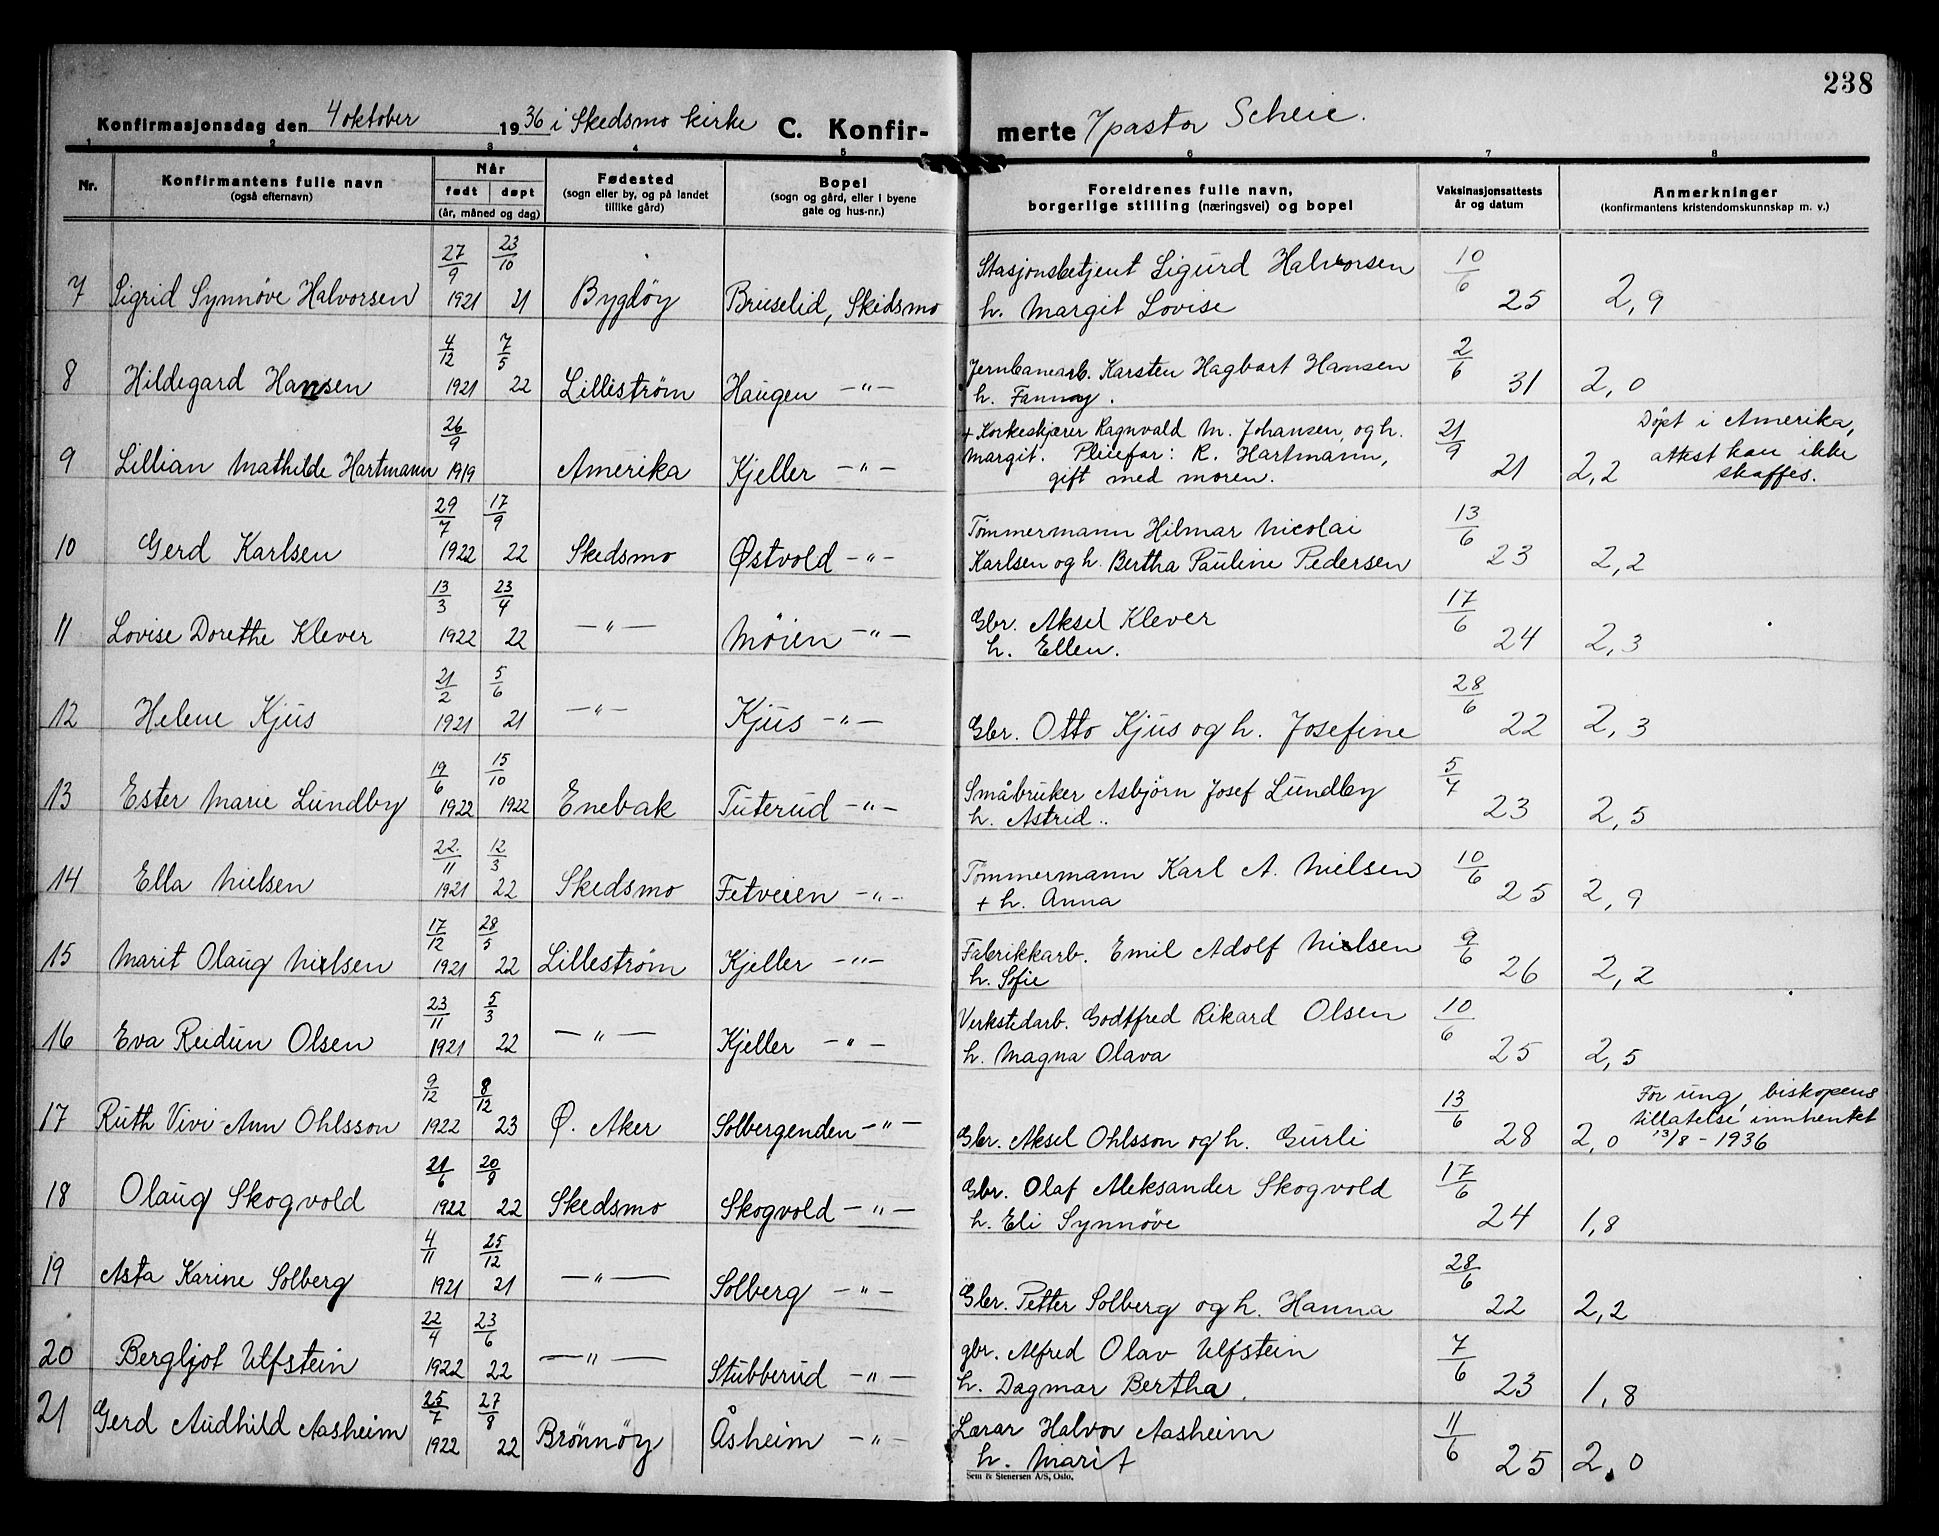 238
Konfirmasjonsdag den 4 oktober 1936 i Skedsmo kirke C. Konfirmerte / pastor Scheie.
1 2 3 4 5 6 7 8
Nr. Konfirmantens fulle navn (også efternavn) Når født døpt (år, måned og dag) Fødested (sogn eller by, og på landet tillike gård) Bopel (sogn og gård, eller i byene gate og hus-nr.) Foreldrenes fulle navn, borgerlige stilling (næringsvei) og bopel Vaksinasjonsattests år og datum Anmerkninger (konfirmantens kristendomskunnskap m. v.)
7 Sigrid Synnøve Halvorsen 27/9 1921 23/10 21 Bygdöy Bruselid, Skedsmo Stasjonsbetjent Sigurd Halvorsen h. Margit Lovise 10/6 25 2,9
8 Hildegard Hansen 4/12 1921 7/5 22 Lilliström Haugen -"- Jernbanearb. Karsten Hagbart Hansen h. Fanny. 2/6 31 2,0
9 Lillian Mathilde Hartmann 26/9 1919 Amerika Kjeller -"- + Korkeskjærer Ragnvald M. Johansen, og h. Margit. Pleiefar: R. Hartmann, gift med moren. 21/9 21 2,2 Döpt i Amerika, attest kan ikke skaffes.
10 Gerd Karlsen 29/7 1922 17/9 22 Skedsmo Østvold -"- Tömmermann Hilmar Nicolai Karlsen og h. Bertha Pauline Pedersen 13/6 23 2,2
11 Lovise Dorethe Klever 13/3 1922 23/4 22 -"- Möien -"- Gbr. Aksel Klever h. Ellen. 17/6 24 2,3
12 Helene Kjus 21/2 1921 5/6 21 -"- Kjus -"- Gbr. Otto Kjus og h. Josefine 28/6 22 2,3
13 Ester Marie Lundby 19/6 1922 15/10 1922 Enebak Tuterud -"- Småbruker Asbjörn Josef Lundby h. Astrid.. 5/7 23 2,5
14 Ella Nielsen 22/11 1921 12/3 22 Skedsmo Fetveien -"- Tömmermann Karl A. Nielsen + h. Anna 10/6 25 2,9
15 Marit Olaug Nielsen 17/12 1921 28/5 22 Lilleström Kjeller -"- Fabrikkarb. Emil Adolf Nielsen h. Sofie 9/6 26 2,2
16 Eva Reidun Olsen 23/11 1921 5/3 22 -"- Kjeller -"- Verkstedarb. Godtfred Rikard Olsen h. Magna Olava 10/6 25 2,5
17 Ruth Vivi-Ann Ohlsson 9/12 1922 8/12 23 Ø. Aker Solbergenden -"- Gbr. Aksel Ohlsson og h. Gurli 13/6 28 2,0 For ung, biskopens tillatelse innhentet 13/8 - 1936
18 Olaug Skogvold 21/6 1922 20/8 22 Skedsmo Skogvold -"- Gbr. Olaf Aleksander Skogvold h. Eli Synnöve 17/6 24 1,8
19 Asta Karine Solberg 4/11 1921 25/12 21 -"- Solberg -"- Gbr. Petter Solberg og h. Hanna 28/6 22 2,2
20 Bergljot Ulfstein 22/4 1922 23/6 22 -"- Stubberud -"- gbr. Alfred Olav Ulfstein h. Dagmar Bertha. 7/6 23 1,8
21 Gerd Audhild Aasheim 25/7 1922 27/8 22 Brönnöy Åsheim -"- Lærar Halvor Aasheim h. Marit 11/6 25 2,0
Sem & Stenersen A/S, Oslo.